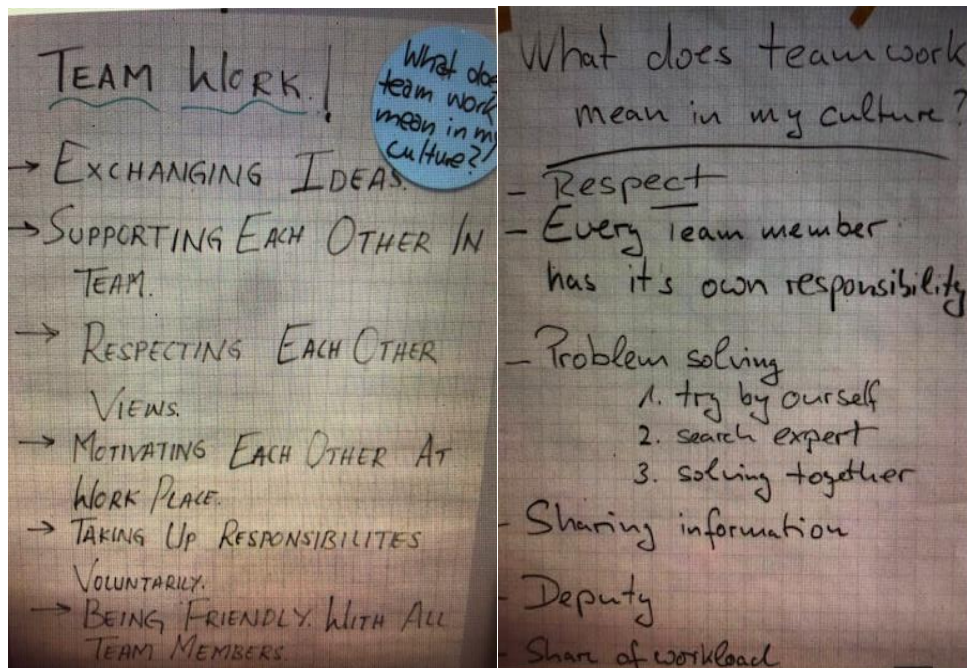 TEAM WORK!
What doe
team work
mean in my
culture?!
→ EXCHANGING IDEAS.
→ SUPPORTING EACH OTHER IN
TEAM.
→ RESPECTING EACH OTHER
VIEWS.
→ MOTIVATING EACH OTHER AT
WORK PLACE.
→ TAKING UP RESPONSIBILITES
VOLUNTARILY.
→ BEING FRIENDLY. WITH ALL
TEAM MEMBERS.
What does teamwork
mean in my culture?
- Respect
- Every Team member
has it's own responsibility
- Problem solving
1. try by ourself
2. search expert
3. solving together
- Sharing information
- Deputy
- Share of workload